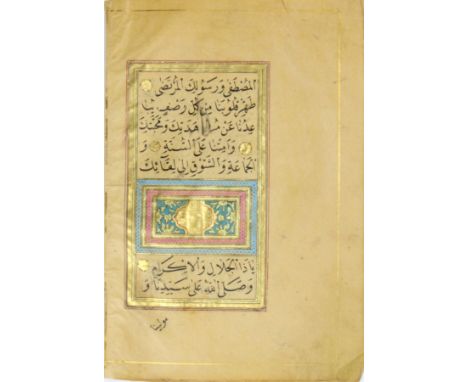 المُصْطَفٰى وَرَسُولِكَ المُرْتَضٰى
طَهِّرْ قُلُوبَنَا مِنْ كُلِّ وَصْفٍ يُبَا
عِدُنَا عَنْ مُشَاهَدَتِكَ وَمَحَبَّتِكَ
وَاَمِتْنَا عَلَى السُّنَّةِ وَ
الجَمَاعَةِ وَالشَّوْقِ اِلٰى لِقَائِكَ
يَاذَا الجَلَالِ وَالاِكْرَامِ
وَصَلَّى اللهُ عَلٰى سَيِّدِنَا وَ